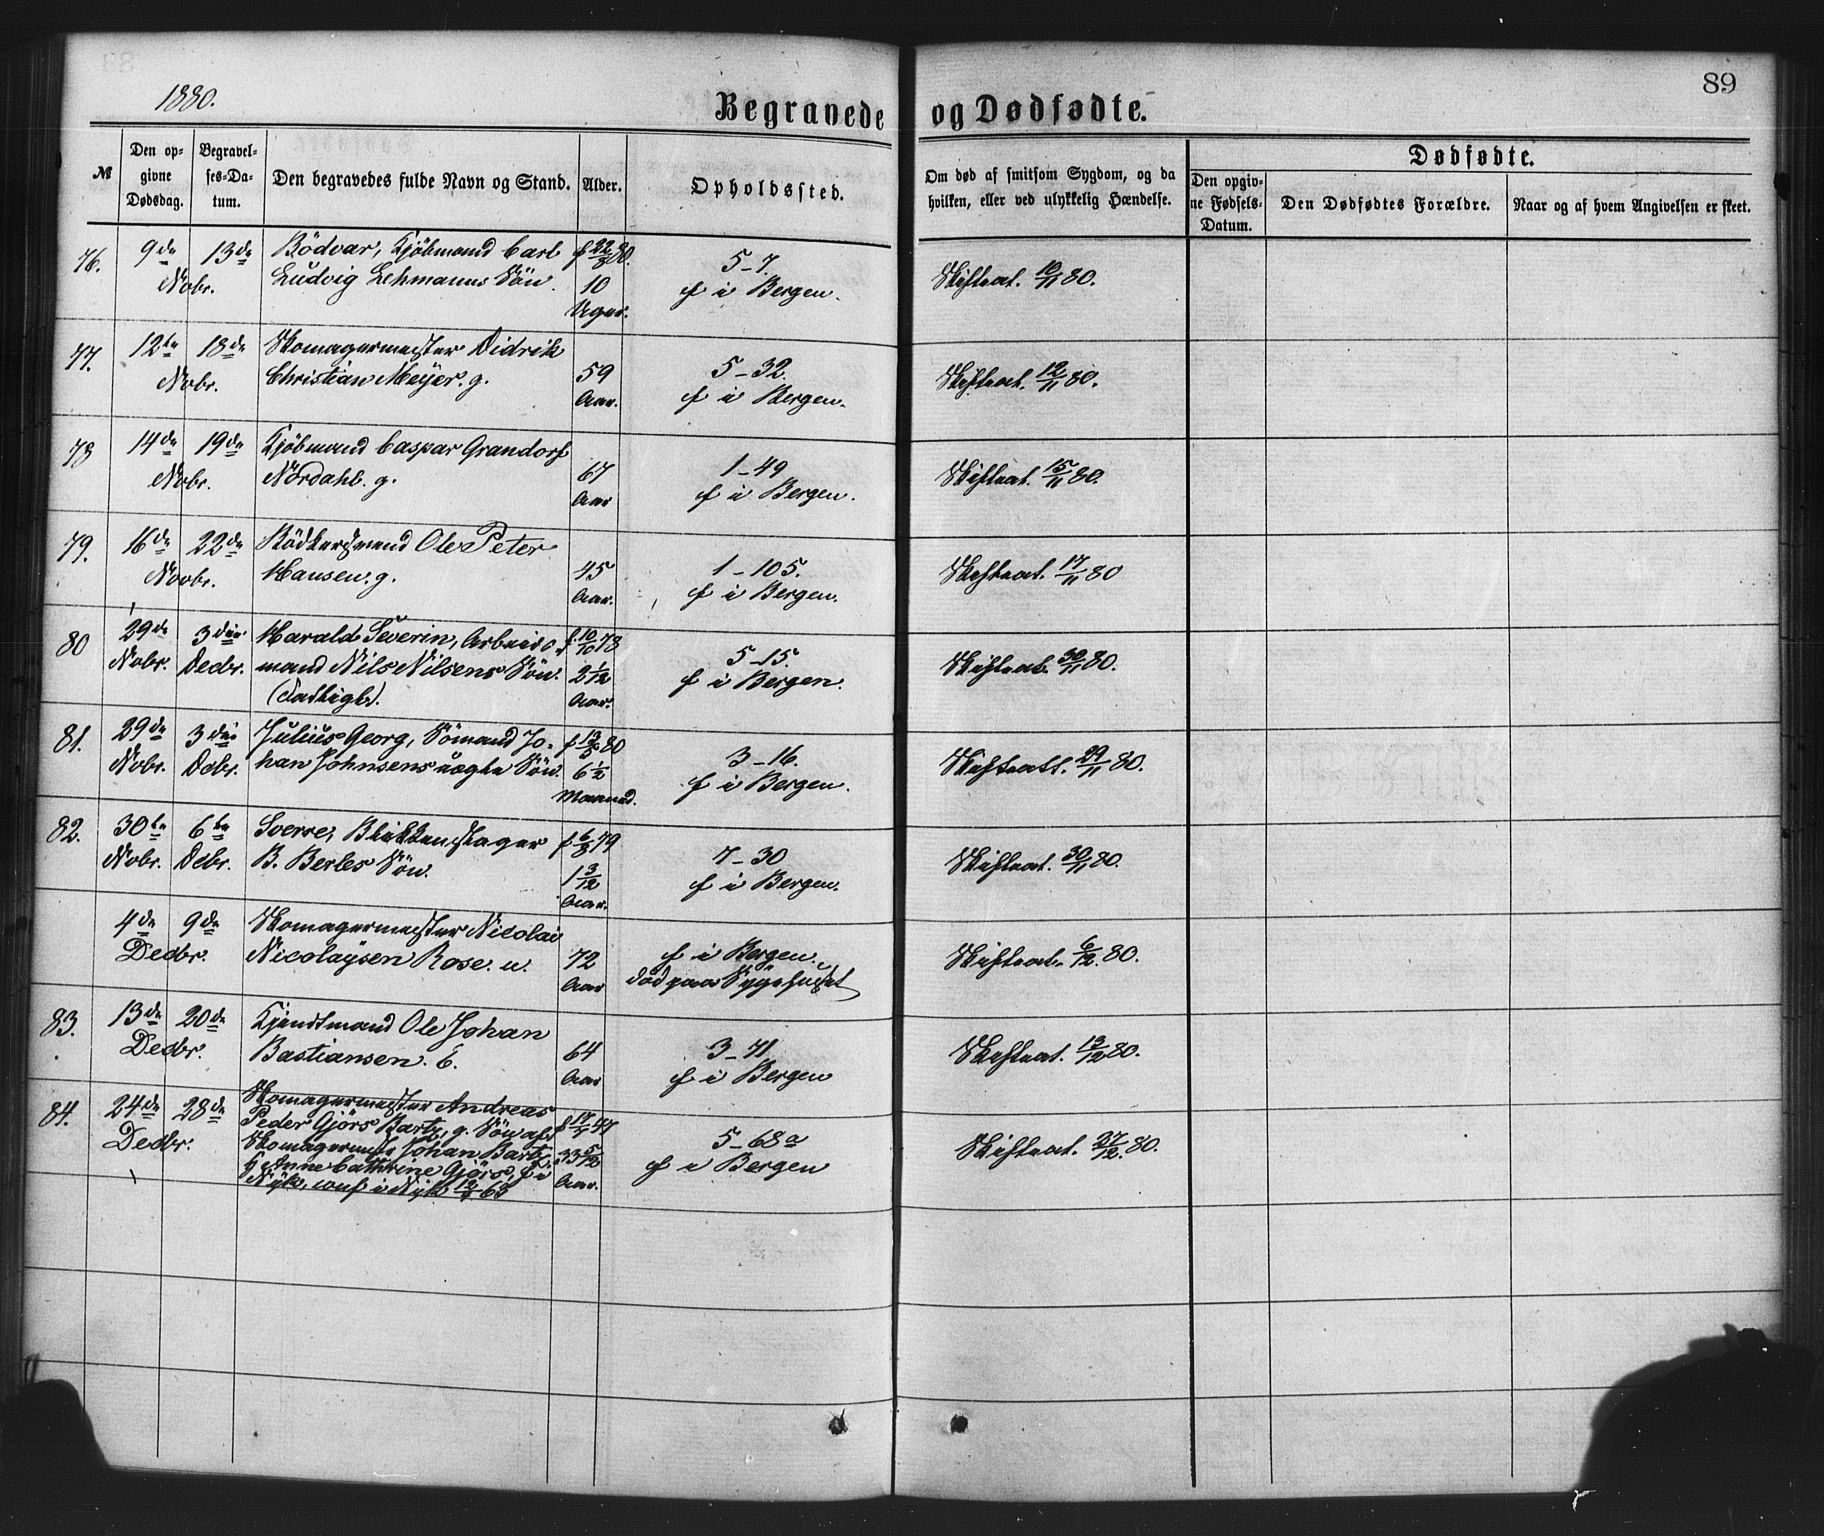 1880.
Begravede og Dødfødte.
89
№
Den opgivne Dødsdag.
Begravelses-Datum.
Den begravedes fulde Navn og Stand.
Alder.
Opholdssted.
Om død af smitsom Sygdom, og da hvilken, eller ved ulykkelig Hændelse.
Dødfødte.
Den opgivne Fødsels-Datum.
Den Dødfødtes Forældre.
Naar og af hvem Angivelsen er skeet.
76. 9de 13de Bödvar, Kjöbmand Carl f 22/8 80. 5-7. Skifteat. 10/11 80.
Nobr. Ludvig Lehmanns Sön. 10 Uger. f i Bergen.
77. 12te 18de Skomagermester Didrik 5-32. Skifteat. 12/11 80.
Nobr. Christian Meyer. g. 59 Aar. f i Bergen.
78 14de 19de Kjöbmand Caspar Grandorf 1-49 Skifteat. 15/11 80.
Nobr. Nordahl. g. 67 Aar f i Bergen.
79. 16de 22de Bödkersvend Ole Peter 1-105. Skifteat. 17/11 80
Novbr. Hansen. g. 45 Aar. f i Bergen.
80 29de 3die Harald Severin, Arbeids- f. 10/10 78 5-15. Skifteat. 30/11 80.
Nobr. Decbr. mand Nils Nilsens Sön. 2 1/12 Aar. f i Bergen.
(Fattigl.).
81. 29de 3die Julius Georg, Sömand Jo- f 13/5 80 3-16. Skifteatt. 29/11 80.
Nobr. Dcbr. han Johnsens uægte Sön. 6 1/2 Maaned. f i Bergen.
82. 30te 6te Sverre, Blikkenslager f 6/8 79 7-30 Skifteat. 30/11 80.
Nobr. Dcbr. B. Berles Sön. 1 3/12 Aar. f i Bergen.
4de 9de Skomagermester Nicolai f i Bergen. Skifteat. 6/12. 80.
Decbr. Nicolaysen Rose. u. 72 Aar död paa Sygehuset
83. 13de 20de Kjendtmand Ole Johan 3-71 Skifteat. 13/12 80.
Decbr. Bastiansen. E. 64 Aar f i Bergen
84. 24de 28de Skomagermester Andreas
Decbr. Peder Gjörs Bartz, g. Sön af f 17/7 47 5-68a Skifteat. 27/12. 80.
Skomagermester Johan Bartz 33 5/12 Aar. f i Bergen
& Anne Cathrine Gjörs, f. i
Nyk, conf i Nyk 12/4 63